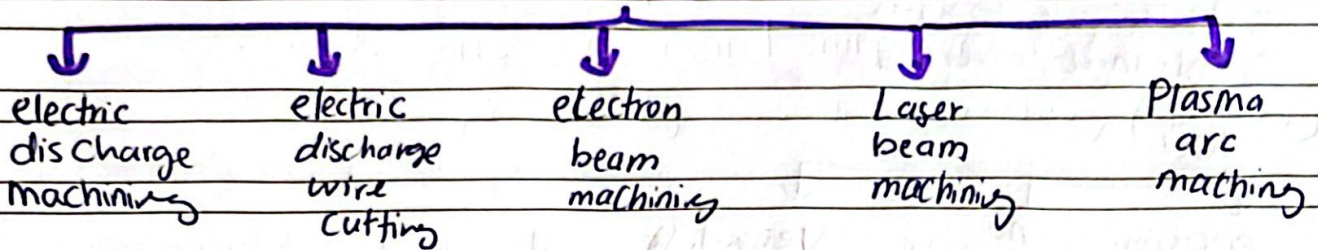 electric
discharge
machining
electric
discharge
wire
cutting
electron
beam
machining
Laser
beam
machining
Plasma
arc
machining